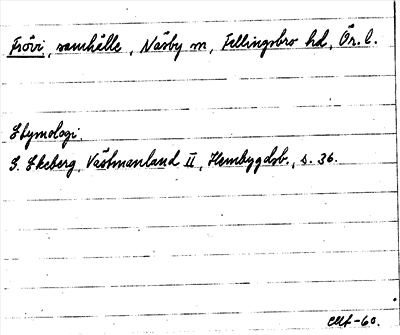 Frövi, samhälle, Näsby sn, Fellingsbro hd, Ör. l.
Etymologi.
G. Ekeberg, Västmanland II, Hembygdsb., s. 36.